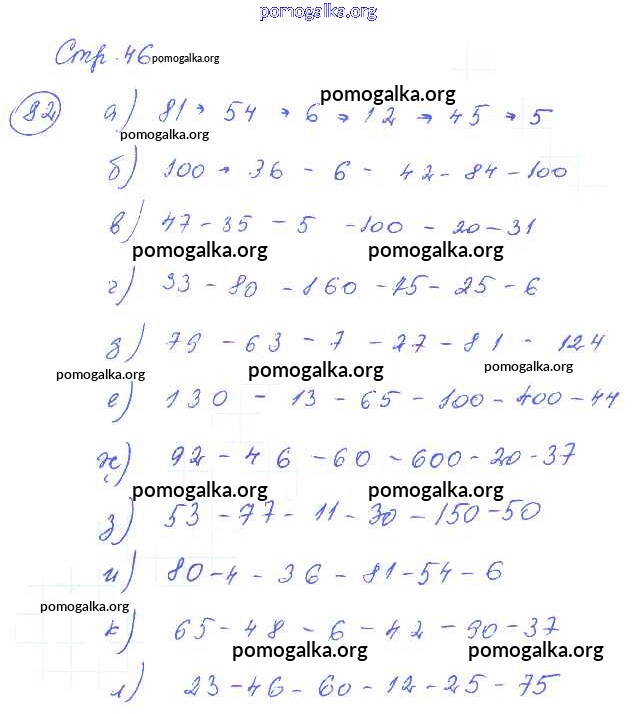 pomogalka.org
Стр. 46 pomogalka.org
pomogalka.org
82 а) 81 → 54 → 6 → 12 → 45 → 5
pomogalka.org
б) 100 → 36 - 6 - 42 - 84 - 100
в) 47 - 35 - 5 - 100 - 20 - 31
pomogalka.org pomogalka.org
г) 93 - 80 - 160 - 75 - 25 - 6
д) 79 - 63 - 7 - 27 - 81 - 124
pomogalka.org pomogalka.org pomogalka.org
е) 130 - 13 - 65 - 100 - 400 - 44
ж) 92 - 46 - 60 - 600 - 20 - 37
pomogalka.org pomogalka.org
з) 53 - 77 - 11 - 30 - 150 - 50
и) 80 - 4 - 36 - 81 - 54 - 6
pomogalka.org
к) 65 - 48 - 6 - 42 - 90 - 37
pomogalka.org pomogalka.org
л) 23 - 46 - 60 - 12 - 25 - 75